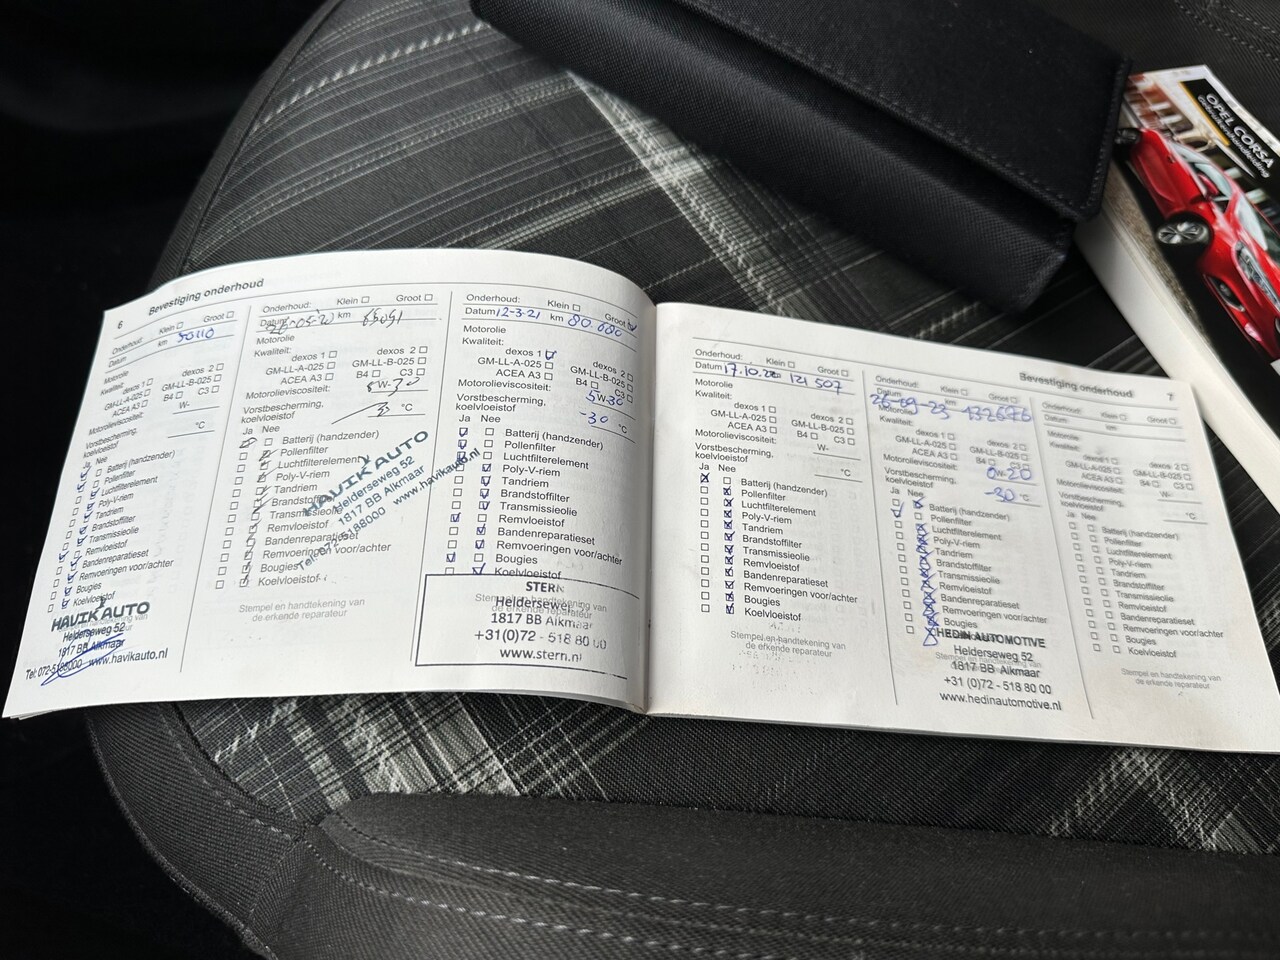 OPEL CORSA
Gebruikershandleiding
6
Bevestiging onderhoud
Onderhoud: Klein Groot
Datum km
Motorolie
Kwaliteit: dexos 1 dexos 2
GM-LL-A-025 GM-LL-B-025
ACEA A3 B4 C3
Motorolieviscositeit: W-
Vorstbescherming, °C
koelvloeistof
Ja Nee
Batterij (handzender)
Pollenfilter
Luchtfilterelement
Poly-V-riem
Tandriem
Brandstoffilter
Transmissieolie
Remvloeistof
Bandenreparatieset
Remvoeringen voor/achter
Bougies
Koelvloeistof
HAVIK AUTO
Helderseweg 52
1817 BB Alkmaar
Tel: 072-5188000 www.havikauto.nl
Onderhoud: Klein Groot
Datum km
Motorolie
Kwaliteit: dexos 1 dexos 2
GM-LL-A-025 GM-LL-B-025
ACEA A3 B4 C3
Motorolieviscositeit: W-
Vorstbescherming, °C
koelvloeistof
Ja Nee
Batterij (handzender)
Pollenfilter
Luchtfilterelement
Poly-V-riem
Tandriem
Brandstoffilter
Transmissieolie
Remvloeistof
Bandenreparatieset
Remvoeringen voor/achter
Bougies
Koelvloeistof
HAVIK AUTO
Helderseweg 52
1817 BB Alkmaar
Tel: 072-5188000 www.havikauto.nl
Stempel en handtekening van
de erkende reparateur
Onderhoud: Klein Groot
Datum 12-3-21 km 80.680
Motorolie
Kwaliteit: dexos 1 dexos 2
GM-LL-A-025 GM-LL-B-025
ACEA A3 B4 C3
Motorolieviscositeit: 5W-30
Vorstbescherming, -30 °C
koelvloeistof
Ja Nee
Batterij (handzender)
Pollenfilter
Luchtfilterelement
Poly-V-riem
Tandriem
Brandstoffilter
Transmissieolie
Remvloeistof
Bandenreparatieset
Remvoeringen voor/achter
Bougies
Koelvloeistof
Stempel en handtekening van
de erkende reparateur
STERN
Helderseweg
1817 BB Alkmaar
+31(0)72 - 518 80 00
www.stern.nl
Bevestiging onderhoud
7
Onderhoud: Klein Groot
Datum 17.10.22 121 507
Motorolie
dexos 1 dexos 2
GM-LL-A-025 GM-LL-B-025
ACEA A3 B4 C3
Motorolieviscositeit: W-
Vorstbescherming, °C
koelvloeistof
Ja Nee
Batterij (handzender)
Pollenfilter
Luchtfilterelement
Poly-V-riem
Tandriem
Brandstoffilter
Transmissieolie
Remvloeistof
Bandenreparatieset
Remvoeringen voor/achter
Bougies
Koelvloeistof
Stempel en handtekening van
de erkende reparateur
Onderhoud: Klein Groot
Datum 26-09-23 km 132676
Motorolie
Kwaliteit: dexos 1 dexos 2
GM-LL-A-025 GM-LL-B-025
ACEA A3 B4 C3
Motorolieviscositeit: 0W-20
Vorstbescherming, -30 °C
koelvloeistof
Ja Nee
Batterij (handzender)
Pollenfilter
Luchtfilterelement
Poly-V-riem
Tandriem
Brandstoffilter
Transmissieolie
Remvloeistof
Bandenreparatieset
Remvoeringen voor/achter
Bougies
HEDIN AUTOMOTIVE
Helderseweg 52
1817 BB Alkmaar
+31 (0)72 - 518 80 00
www.hedinautomotive.nl
Onderhoud: Klein Groot
Datum km
Motorolie
Kwaliteit: dexos 1 dexos 2
GM-LL-A-025 GM-LL-B-025
ACEA A3 B4 C3
Motorolieviscositeit: W-
Vorstbescherming, °C
koelvloeistof
Ja Nee
Batterij (handzender)
Pollenfilter
Luchtfilterelement
Poly-V-riem
Tandriem
Brandstoffilter
Transmissieolie
Remvloeistof
Bandenreparatieset
Remvoeringen voor/achter
Bougies
Koelvloeistof
Stempel en handtekening van
de erkende reparateur